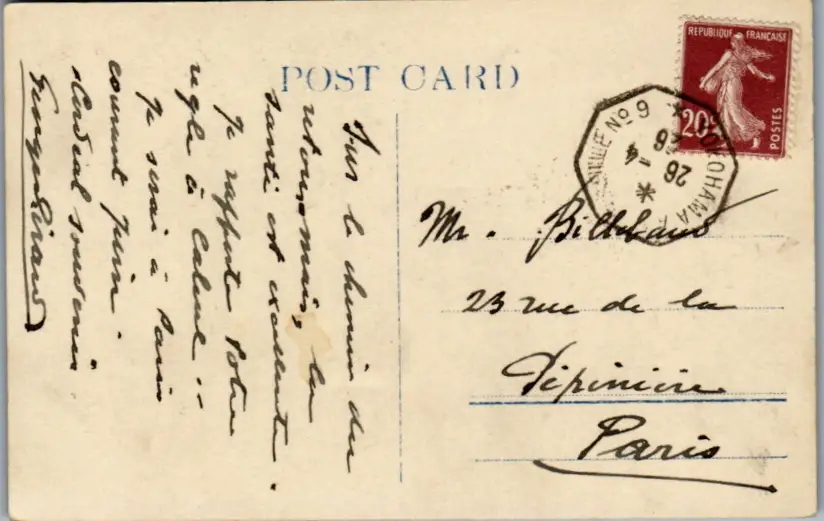 POST CARD
Sur le chemin du
retour, mais, la
santé est excellente.
Je rapporte votre
regle à calcul..
Je serai à Paris
courant Juin.
Cordial souvenir
Georges Giraud
REPUBLIQUE FRANÇAISE
20c
POSTES
YOKOHAMA A
LLE No 9
26 -4
26
Mr. Billebaud
23 rue de la
Pépinière
Paris